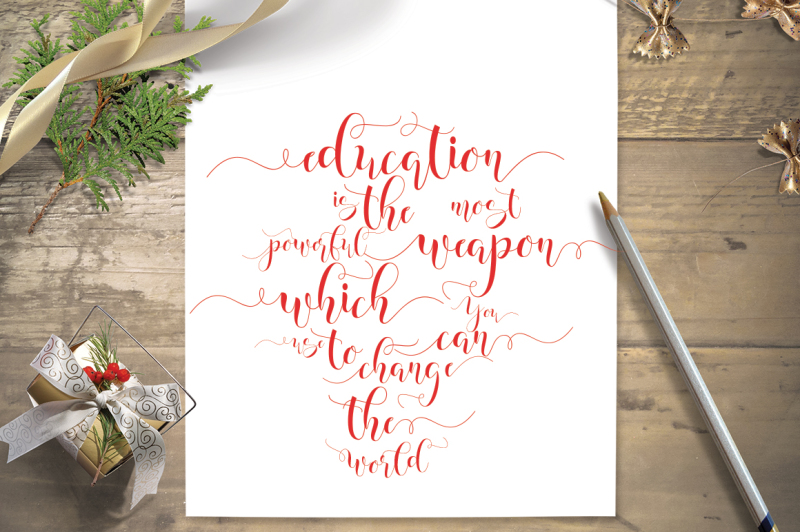 education
is the most
powerful weapon
which You
use to can
change
the
world